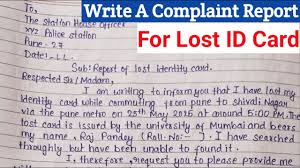 Write A Complaint Report
For Lost ID Card
To,
The Station House Officer
XYZ Police station
Pune - 27
Date: 1...
Sub: Report of lost identity card.
Respected Sir/Madam,
I am writing to inform you that I have lost my
identity card while commuting from pune to Shivaji Nagar
via the pune metro on 25th May 2025 at around 5:00 PM. The
lost card is issued by the university of Mumbai and bears
my name Raj Pandey (Roll-No- ). I have searched
throughly but have been unable to locate it.
I, therefore, request you to please provide me